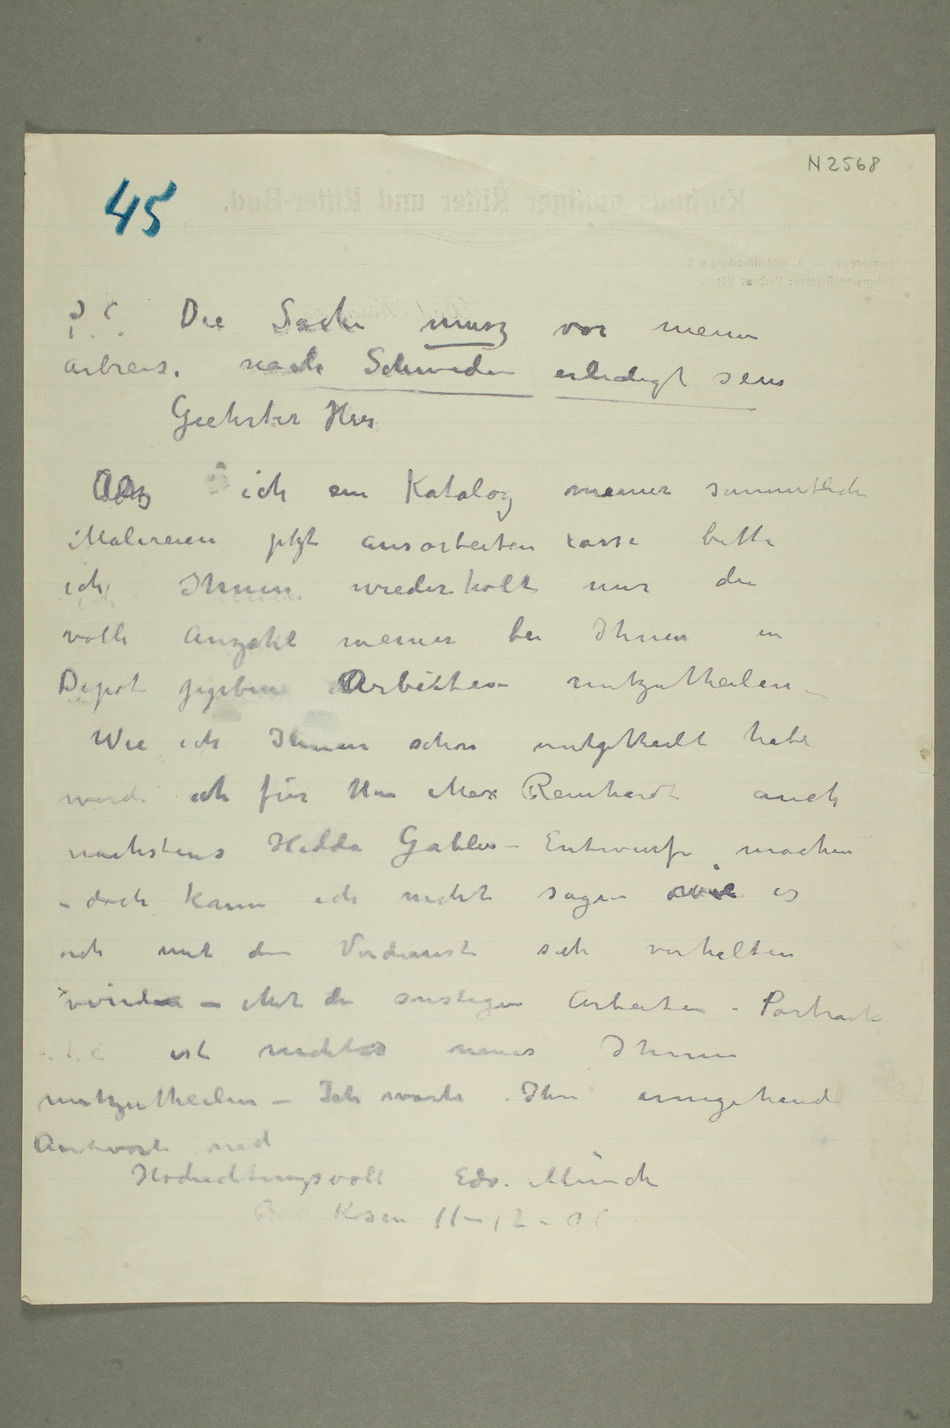 N 2568
45
P.S. Die Sache musz vor meine
Abreis. nach Schweden erledigt sein
Geehrter Herr
Da ich ein Katalog meiner sammtlich
Malereien jetzt ausarbeiten lasse bitte
ich Ihnen wiederholt mir die
volle Anzahl meiner bei Ihnen in
Depot gegeben Arbeiten mitzutheilen –
Wie ich Ihnen schon mitgetheilt habe
werde ich für Max Reinhardt auch
nachstens Hedda Gabler – Entwurfe machen
– doch kann ich nicht sagen wie es
sich mit den Verdienste sich verhalten
würde – Mit die sonstigen Arbeiten – Portraits
ist nichts neues Ihnen
mitzutheilen – Ich warte Ihre umgehend
Antwort
Hochachtungsvoll Edv. Munch
Bad Kösen 11–12–